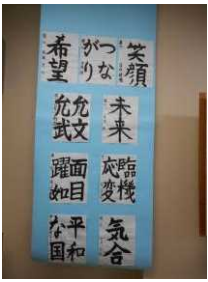 笑顔
つながり
希望
未来
允文允武
臨機応変
面目躍如
気合
平和な国